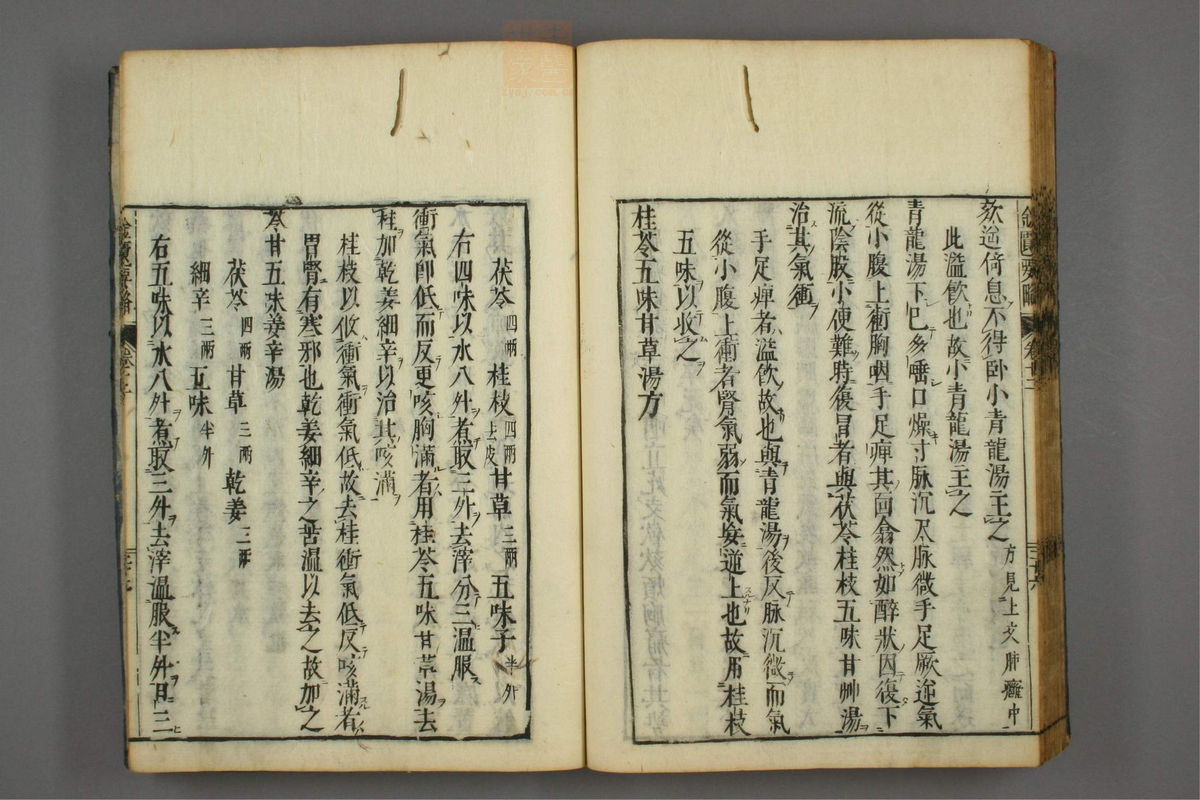 欬逆倚息不得卧小青龍湯主之方見上文肺癰中
此溢飲也故小青龍湯主之
青龍湯下已多唾口燥寸脉沉尺脉微手足厥逆氣
從小腹上衝胸咽手足痺其面翕然如醉狀因復下
流陰股小便難時復冒者與茯苓桂枝五味甘艸湯
治其氣衝
手足痺者溢飲故也與青龍湯後反脉沉微而氣
從小腹上衝者腎氣弱而氣妄逆上也故用桂枝
五味以收之
桂苓五味甘草湯方
茯苓四兩 桂枝四兩去皮 甘草三兩 五味子半升
右四味以水八升煮取三升去滓分三温服
衝氣即低而反更咳胸滿者用桂苓五味甘草湯去
桂加乾姜細辛以治其咳滿
桂枝以收衝氣衝氣低故去桂衝氣低反咳滿者
胃腎有寒邪也乾姜細辛之苦温以去之故加之
苓甘五味姜辛湯
茯苓四兩 甘草三兩 乾姜三兩
細辛三兩 五味半升
右五味以水八升煮取三升去滓温服半升日三